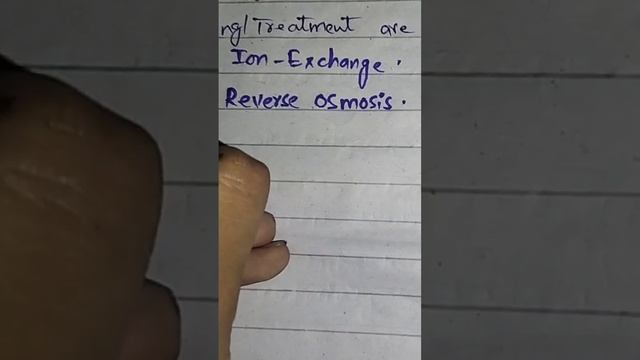 ng/Treatment are
Ion-Exchange.
Reverse osmosis.